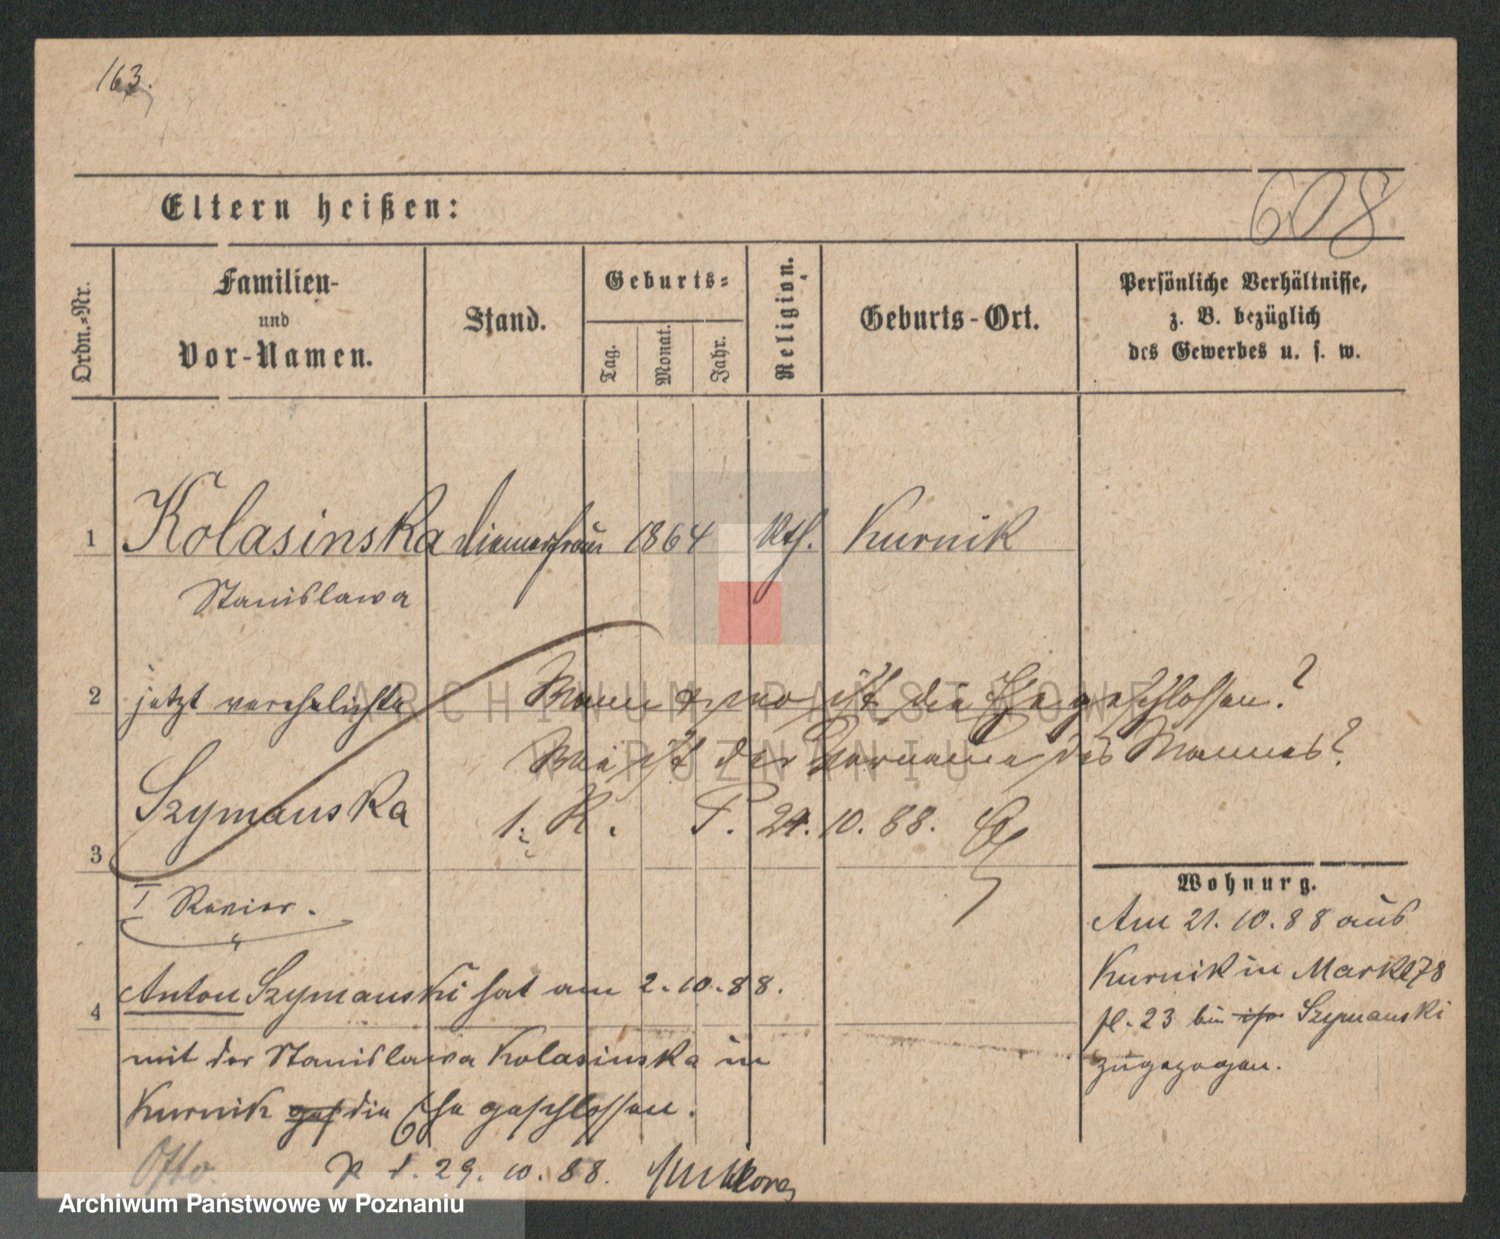 163.
608
Eltern heißen:
Ordn.-Nr.
Familien-
und
Vor-Namen.
Stand.
Geburts-
Tag.
Monat.
Jahr.
Religion.
Geburts-Ort.
Persönliche Verhältnisse,
z. B. bezüglich
des Gewerbes u. s. w.
1 Kolasinska 1864 kth. Kurnik
Stanislawa
2 jetzt verehelichte
Szymanska
Wann & wo ist die Ehe geschlossen?
Wie ist der Vorname des Mannes?
1. R. P. 24. 10. 88.
3
I Revier.
Wohnung.
Am 21. 10. 88 aus
Kurnik in Markt 78
pl. 23 bei Szymanski
zugezogen.
4 Anton Szymanski hat am 2. 10. 88.
mit der Stanislawa Kolasinska in
Kurnik die Ehe geschlossen.
P d. 29. 10. 88.
ARCHIWUM PAŃSTWOWE
W POZNANIU
Archiwum Państwowe w Poznaniu